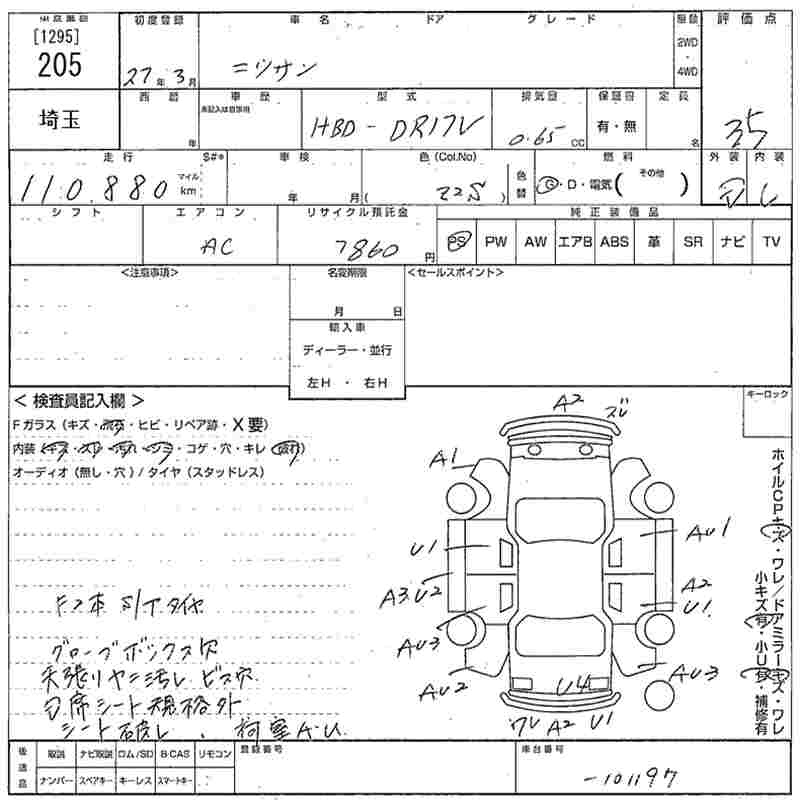 [1295]
205
初度登録
車名
ドア
グレード
2WD
・
4WD
評価点
27年3月
ニッサン
3.5
埼玉
西暦
年
車歴
型式
排気量
保証書
定員
HBD-DR17V
0.65 CC
有・無
名
走行
S#*
車検
色(Col.No)
色替
燃料
外装
内装
110.880
マイル
km
年 月
(Z2S)
G・D・電気( その他 )
シフト
エアコン
リサイクル預託金
純正装備品
AC
7860円
PS
PW
AW
エアB
ABS
革
SR
ナビ
TV
<注意事項>
名変期限
<セールスポイント>
月 日
輸入車
ディーラー・並行
左H ・ 右H
< 検査員記入欄 >
キーロック
Fガラス(キズ・飛石・ヒビ・リペア跡・X要)
内装(キズ・スレ・汚れ・シミ・コゲ・穴・キレ
オーディオ(無し・穴)/タイヤ(スタッドレス)
A2
ズレ
A1
AU1
U1
A2
U1
A3.U2
AU3
AU2
AU3
U4
ワレ A2 U1
ホイルCPキズ・ワレ/ドアミラーキズ・ワレ
小キズ有・小U有・補修有
F2本 S/Tタイヤ
グローブボックス穴
天張リヤニ汚レ ビス穴
シート規格外
シート破レ . 荷室A.U.
後送品
取説
ナビ取説
ロム/SD
B-CAS
リモコン
ナンバー
スペアキー
キーレス
スマートキー
登録番号
車台番号
-101197